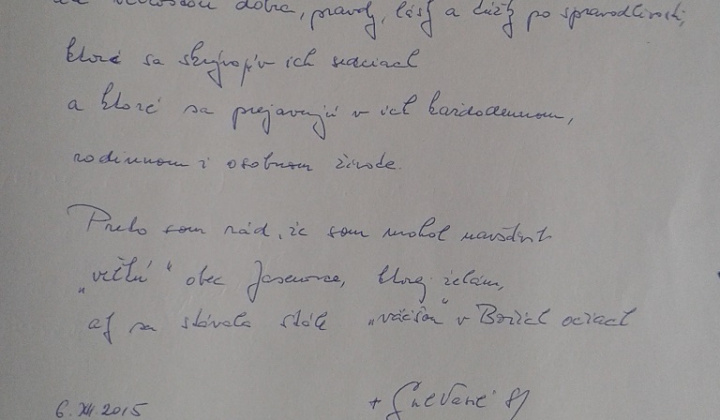 dobra, pravdy, lásky a túžby po spravodlivosti,
ktoré sa skrývajú v ich srdciach
a ktoré sa prejavujú v ich každodennom,
rodinnom i osobnom živote.
Preto som rád, že som mohol navštíviť
„veľkú“ obec Jasenovce, ktorej želám,
aby sa stávala stále „väčšou“ v Božích očiach
6. XII. 2015 +